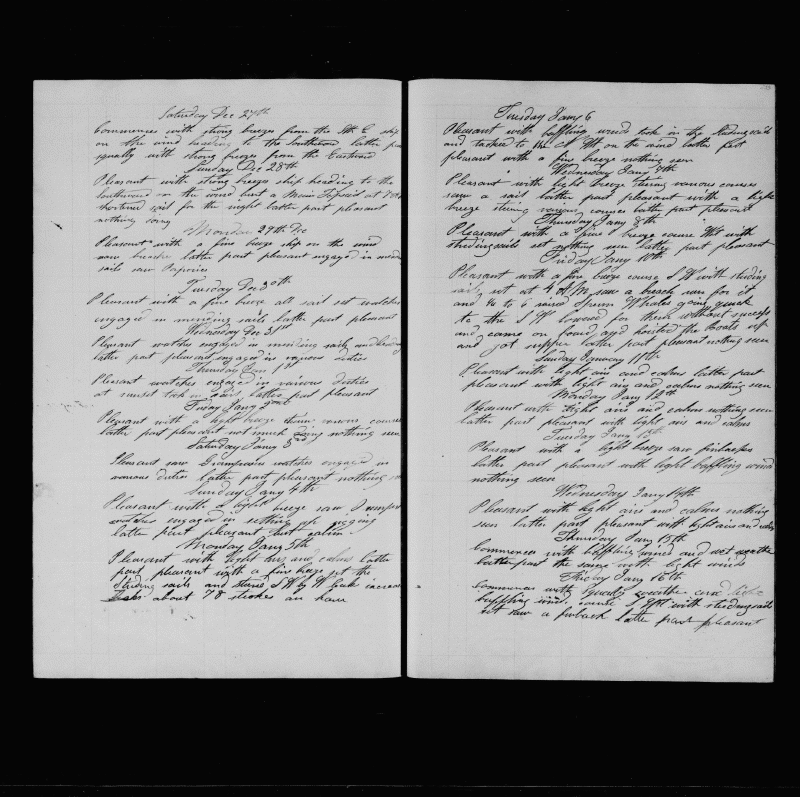 Saturday Dec 27th
Commences with strong breezes from the Sth E ship
on the wind heading to the Southward latter par
squally with strong breezes from the Eastward
Sunday Dec 28th
Pleasant with strong breezes ship heading to the
Southward on the wind a Main Topsail at
shortened sail for the night latter part pleasant
nothing
Monday 29th Dec
Pleasant with a fine breeze ship on the wind
saw latter part pleasant engaged in mend
sails saw
Tuesday Dec 30th
Pleasant with a fine breeze all sail set watches
engaged in mending sails latter part pleasant
Wednesday Dec 31st
Pleasant watches engaged in mending sails and
latter part pleasant engaged in various duties
Thursday Jan 1st
Pleasant watches engaged in various duties
at sunset took in sail latter part pleasant
Friday Jany 2nd
Pleasant with a light breeze various courses
latter part pleasant not much doing nothing seen
Saturday Jany 3rd
Pleasant saw Grampuses watches engaged in
various duties latter part pleasant nothing
Sunday Jany 4th
Pleasant with a light breeze saw
watches engaged in setting up rigging
latter part pleasant but calm
Monday Jany 5th
Pleasant with light airs and calms latter
part pleasant with a fine breeze set the
studing sails and steered S W by W leak increas
about 78 strokes an hour
Tuesday Jany 6
Pleasant with baffling winds took in the studing sails
and tacked to the N Wt on the wind latter part
pleasant with a fine breeze nothing seen
Wednesday Jany 7th
Pleasant with light breeze stering various courses
saw a sail latter part pleasant with a light
breeze stering various courses latter part pleasant
Thursday Jany 8th
Pleasant with a fine breeze course Wt with
studing sails set nothing seen latter part pleasant
Friday Jany 10th
Pleasant with a fine breeze course S W with studing
sails set at 4 P.M. saw a breach run for it
and to 6 raised Sperm Whales going quick
to the S W lowered for them without success
and came on board and hoisted the boats up
and got supper latter part pleasant nothing seen
Sunday January 11th
Pleasant with light air and calms latter part
pleasant with light airs and calms nothing seen
Monday Jany 12th
Pleasant with light airs and calms nothing seen
latter part pleasant with light airs and calms
Tuesday Jany 13
Pleasant with a light breeze saw finbacks
latter part pleasant with light baffling wind
nothing seen
Wednesday Jany 14th
Pleasant with light airs and calms nothing
seen latter part pleasant with light airs and calms
Thursday Jany 15th
Commences with baffling winds and wet weathe
latter part the same with light winds
Friday Jany 16th
Commences with squaly weathe and light
baffling wind course S Wt with studing sails
set saw a finback latter part pleasant